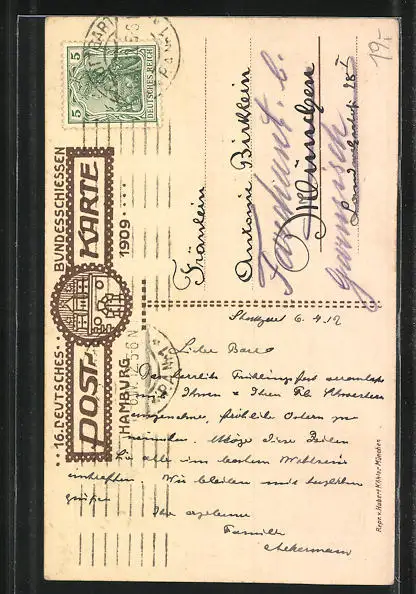 16. DEUTSCHES BUNDESSCHIESSEN
POSTKARTE
HAMBURG 1909
5 DEUTSCHES REICH 5
19.-
Fräulein
Antonie Birklein
München
Landwehrstr. 28 I
Garmisch
Stuttgart 6.4.12
Liebe
Das herrliche Frühlingsfest veranlasst
Ihnen & Ihren Frl. Schwestern
angenehme, fröhliche Ostern zu
wünschen. Mögen diese Zeilen
Sie alle im besten Wohlsein
antreffen. Wir bleiben mit herzlichen
Grüßen
Ihre ergebene
Familie
Ackermann
Repr. v. Hubert Köhler München